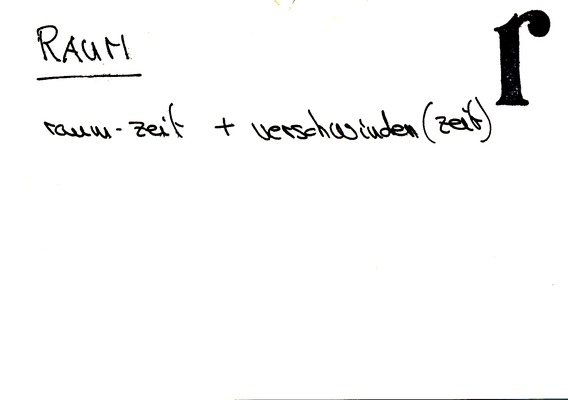 r
RAUM
raum-zeit + verschwinden (zeit)